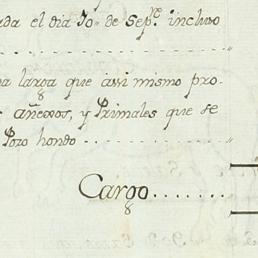 ada el dia 30,, de Sep.^e inclusô
a larga que assi mismo pro-
añexos, y Primales que se
Pozo hondo
Cargo